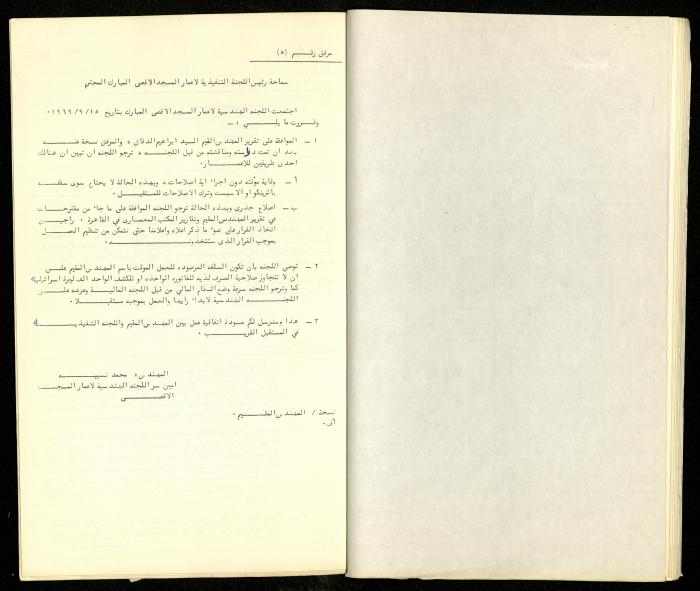 مرفق رقم (٥)
سماحة رئيس اللجنة التنفيذية لاعمار المسجد الاقصى المبارك المحترم
اجتمعت اللجنه الهندسية لاعمار المسجد الاقصى المبارك بتاريخ ١٩٦٩/٩/١٥٠
وقررت ما يلي :-
١ - الموافقة على تقرير المهندس المقيم السيد ابراهيم الدقاق ، والمرفق نسخة عنه
بعد ان تمت دراسته ومناقشته من قبل اللجنه ، ترجو اللجنه ان تبين ان هنالك
احدى طريقين للاعمار.
أ - وقاية مؤقته دون اجراء اية اصلاحات ، وبهذه الحالة لا يحتاج سوى سقفه
بالزينكو او الاسبست وترك الاصلاحات للمستقبل .
ب - اصلاح جذرى وبهذه الحالة ترجو اللجنه الموافقة على ما جاء من مقترحات
في تقرير المهندس المقيم وتقارير المكتب المعمارى في القاهرة . راجين
اتخاذ القرار على ضوء ما ذكر اعلاه واعلامنا حتى نتمكن من تنظيم العمل
بموجب القرار الذى ستتخذونه
٢ - توصي اللجنه بان تكون السلفه المرصوده للعمل الموقت باسم المهندس المقيم على
ان لا تتجاوز صلاحية الصرف لديه للفاتوره الواحده او للكشف الواحد الف ليرة اسرائيلية
كما وترجو اللجنه سرعة وضع النظام المالي من قبل اللجنه المالية وعرضه على
اللجنه الهندسية لابداء رايها والعمل بموجبه مستقبلا .
٣ - هذا وسنرسل لكم مسودة اتفاقية عمل بين المهندس المقيم واللجنه التنفيذية
في المستقبل القريب .
المهندس ، محمد نسيبه
امين سر اللجنه الهندسية لاعمار المسجد
الاقصى
نسخة / المهندس المقيم .